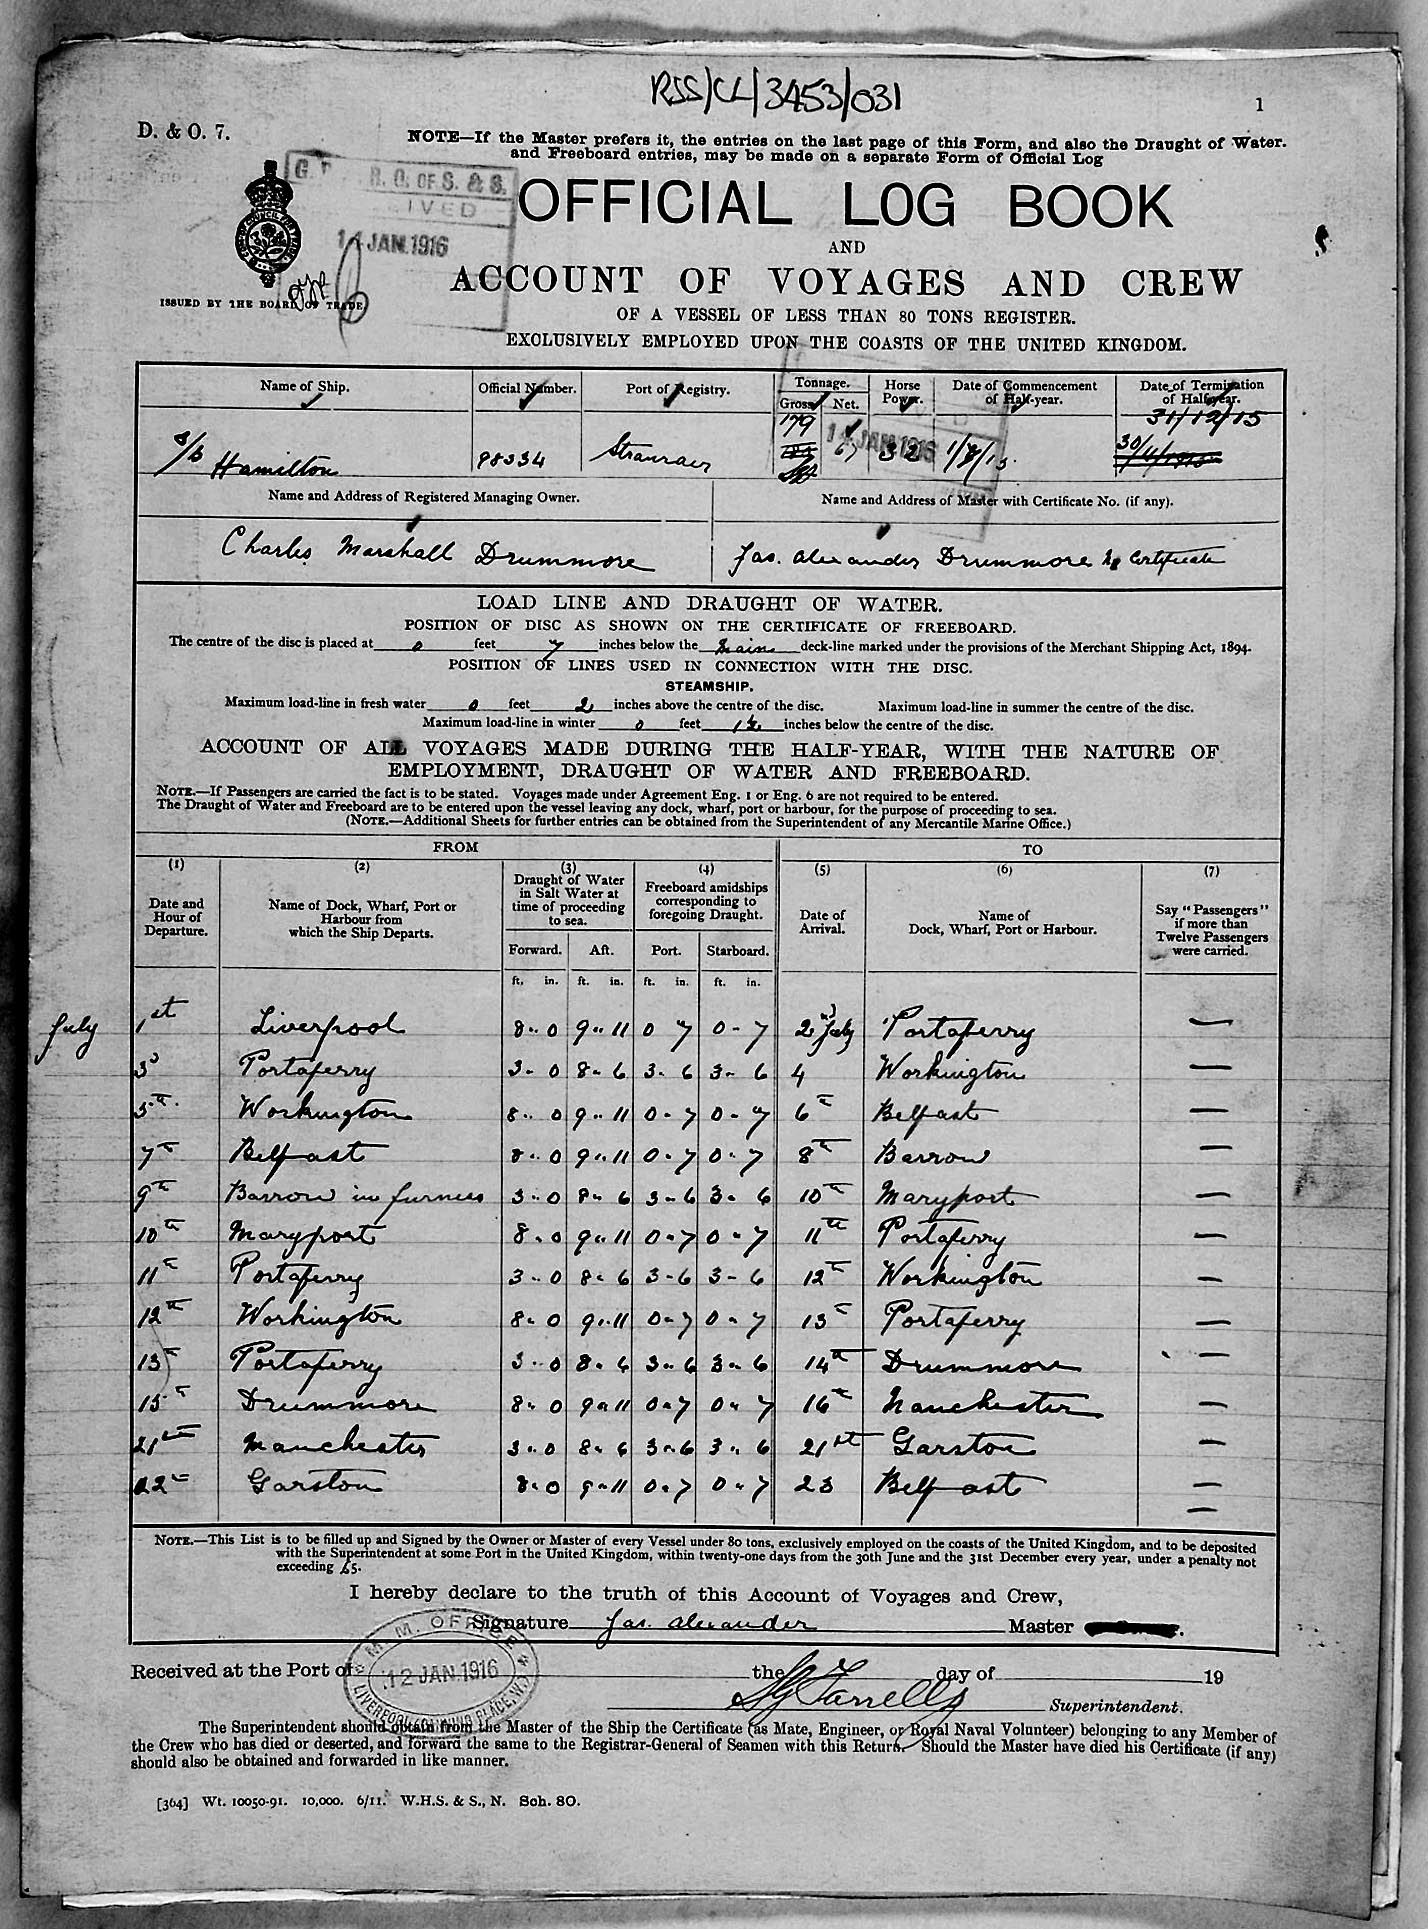 RSS/CL/3453/031
1
D. & O. 7.
NOTE—If the Master prefers it, the entries on the last page of this Form, and also the Draught of Water.
and Freeboard entries, may be made on a separate Form of Official Log
R. O. OF S. & S.
14 JAN. 1916
OFFICIAL LOG BOOK
AND
ACCOUNT OF VOYAGES AND CREW
ISSUED BY THE BOARD OF TRADE
OF A VESSEL OF LESS THAN 80 TONS REGISTER.
EXCLUSIVELY EMPLOYED UPON THE COASTS OF THE UNITED KINGDOM.
Name of Ship. Official Number. Port of Registry. Tonnage. Gross. Net. Horse Power. Date of Commencement of Half-year. Date of Termination of Half-year.
31/12/15
179
14 JAN 1916
s/s Hamilton 98334 Stranraer 67 32
Name and Address of Registered Managing Owner. Name and Address of Master with Certificate No. (if any).
Charles Marshall Drummore Jas. Alexander Drummore No Certificate
LOAD LINE AND DRAUGHT OF WATER.
POSITION OF DISC AS SHOWN ON THE CERTIFICATE OF FREEBOARD.
The centre of the disc is placed at 0 feet 7 inches below the Main deck-line marked under the provisions of the Merchant Shipping Act, 1894.
POSITION OF LINES USED IN CONNECTION WITH THE DISC.
STEAMSHIP.
Maximum load-line in fresh water 0 feet 2 inches above the centre of the disc. Maximum load-line in summer the centre of the disc.
Maximum load-line in winter 0 feet 1½ inches below the centre of the disc.
ACCOUNT OF ALL VOYAGES MADE DURING THE HALF-YEAR, WITH THE NATURE OF
EMPLOYMENT, DRAUGHT OF WATER AND FREEBOARD.
NOTE.—If Passengers are carried the fact is to be stated. Voyages made under Agreement Eng. 1 or Eng. 6 are not required to be entered.
The Draught of Water and Freeboard are to be entered upon the vessel leaving any dock, wharf, port or harbour, for the purpose of proceeding to sea.
(NOTE.—Additional Sheets for further entries can be obtained from the Superintendent of any Mercantile Marine Office.)
FROM TO
(1) (2) (3) (4) (5) (6) (7)
Date and Hour of Departure. Name of Dock, Wharf, Port or Harbour from which the Ship Departs. Draught of Water in Salt Water at time of proceeding to sea. Freeboard amidships corresponding to foregoing Draught. Date of Arrival. Name of Dock, Wharf, Port or Harbour. Say "Passengers" if more than Twelve Passengers were carried.
Forward. Aft. Port. Starboard.
ft. in. ft. in. ft. in. ft. in.
July 1st Liverpool 8 - 0 9 - 11 0 7 0 - 7 2nd July Portaferry —
3d Portaferry 3 - 0 8 - 6 3 - 6 3 - 6 4 Workington —
5th Workington 8 - 0 9 - 11 0 - 7 0 - 7 6th Belfast —
7th Belfast 8 - 0 9 - 11 0 - 7 0 - 7 8th Barrow —
9th Barrow in furness 3 - 0 8 - 6 3 - 6 3 - 6 10th Maryport —
10th Maryport 8 - 0 9 - 11 0 - 7 0 - 7 11th Portaferry —
11th Portaferry 3 - 0 8 - 6 3 - 6 3 - 6 12th Workington —
12th Workington 8 - 0 9 - 11 0 - 7 0 - 7 13th Portaferry —
13th Portaferry 3 - 0 8 - 6 3 - 6 3 - 6 14th Drummore —
15th Drummore 8 - 0 9 - 11 0 - 7 0 - 7 16th Manchester —
21st Manchester 3 - 0 8 - 6 3 - 6 3 - 6 21st Garston —
22nd Garston 8 - 0 9 - 11 0 - 7 0 - 7 23 Belfast —
NOTE.—This List is to be filled up and Signed by the Owner or Master of every Vessel under 80 tons, exclusively employed on the coasts of the United Kingdom, and to be deposited
with the Superintendent at some Port in the United Kingdom, within twenty-one days from the 30th June and the 31st December every year, under a penalty not
exceeding £5.
I hereby declare to the truth of this Account of Voyages and Crew,
Signature Jas. Alexander Master
M. M. OFFICE
12 JAN. 1916
LIVERPOOL
Received at the Port of the day of 19
Superintendent.
The Superintendent should obtain from the Master of the Ship the Certificate (as Mate, Engineer, or Royal Naval Volunteer) belonging to any Member of
the Crew who has died or deserted, and forward the same to the Registrar-General of Seamen with this Return. Should the Master have died his Certificate (if any)
should also be obtained and forwarded in like manner.
[364] Wt. 10050-91. 10,000. 6/11. W.H.S. & S., N. Sch. 80.